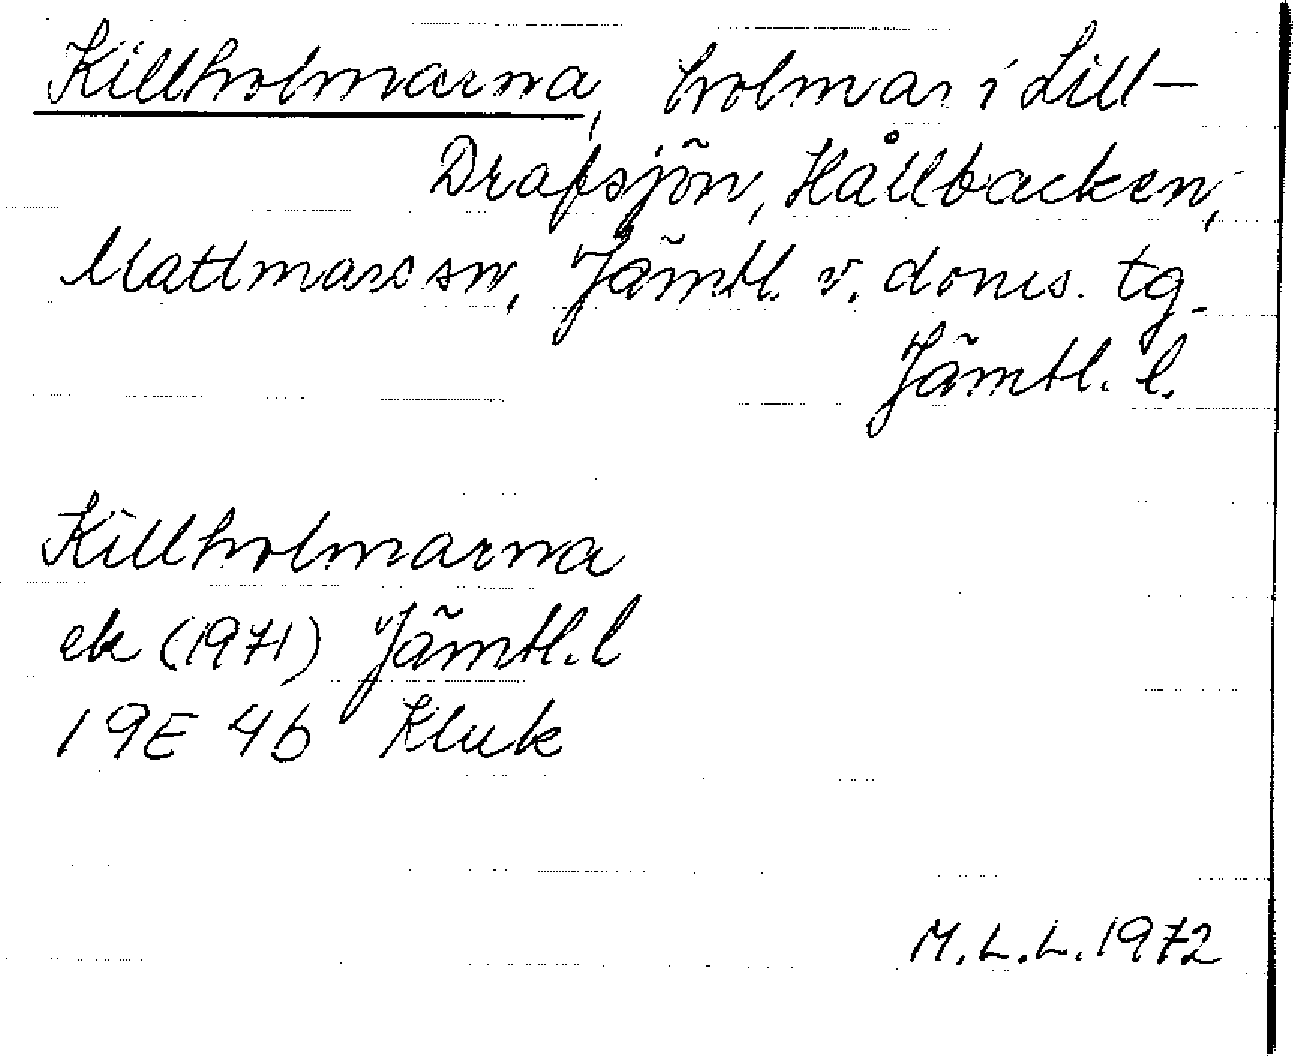 Killholmarna, holmar i Lill-
Drafsjön, Hållbacken,
Mattmars sn, Jämtl. v. doms. tg.
Jämtl. l.
Killholmarna
ek (1971) Jämtl. l
19E 4b Kluk
M.L.L. 1972